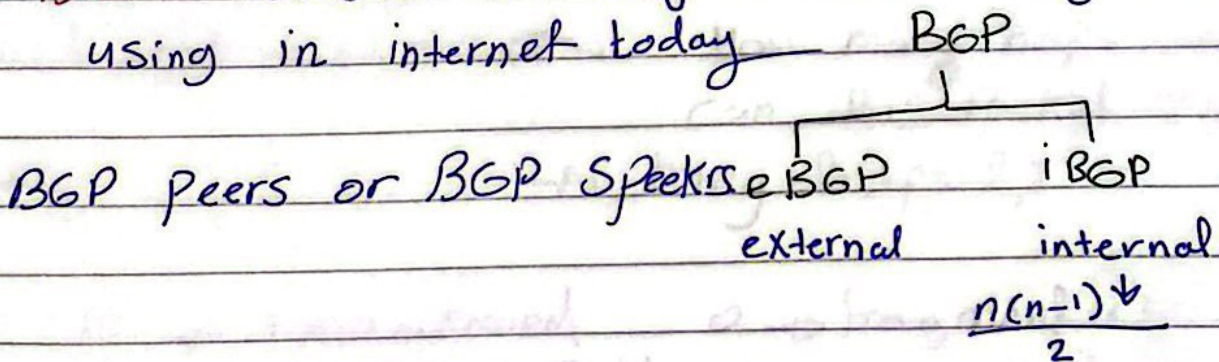 using in internet today BGP
BGP Peers or BGP Speekrs eBGP iBGP
external internal
n(n-1) ↓
2